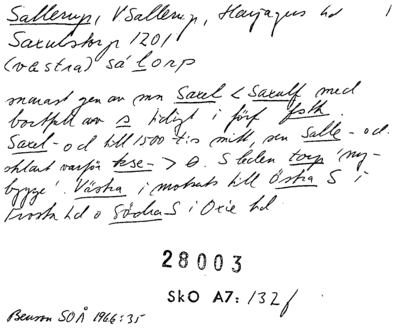 Sallerup, V Sallerup, Harjagers hd 1
Saxulstorp 1201
(västra) sálorp
snarast gen av mn Saxel < Saxulf med
bortfall av s tidigt i förf folk.
Saxel- od till 1500-t:s mitt, sen Salle- od.
oklart varför > S leden torp 'ny-
bygge'. Västra i motsats till Östra S i
Frosta hd o Södra S i Oxie hd
28003
SkO A7: 132 f
Benson SOÅ 1966:35